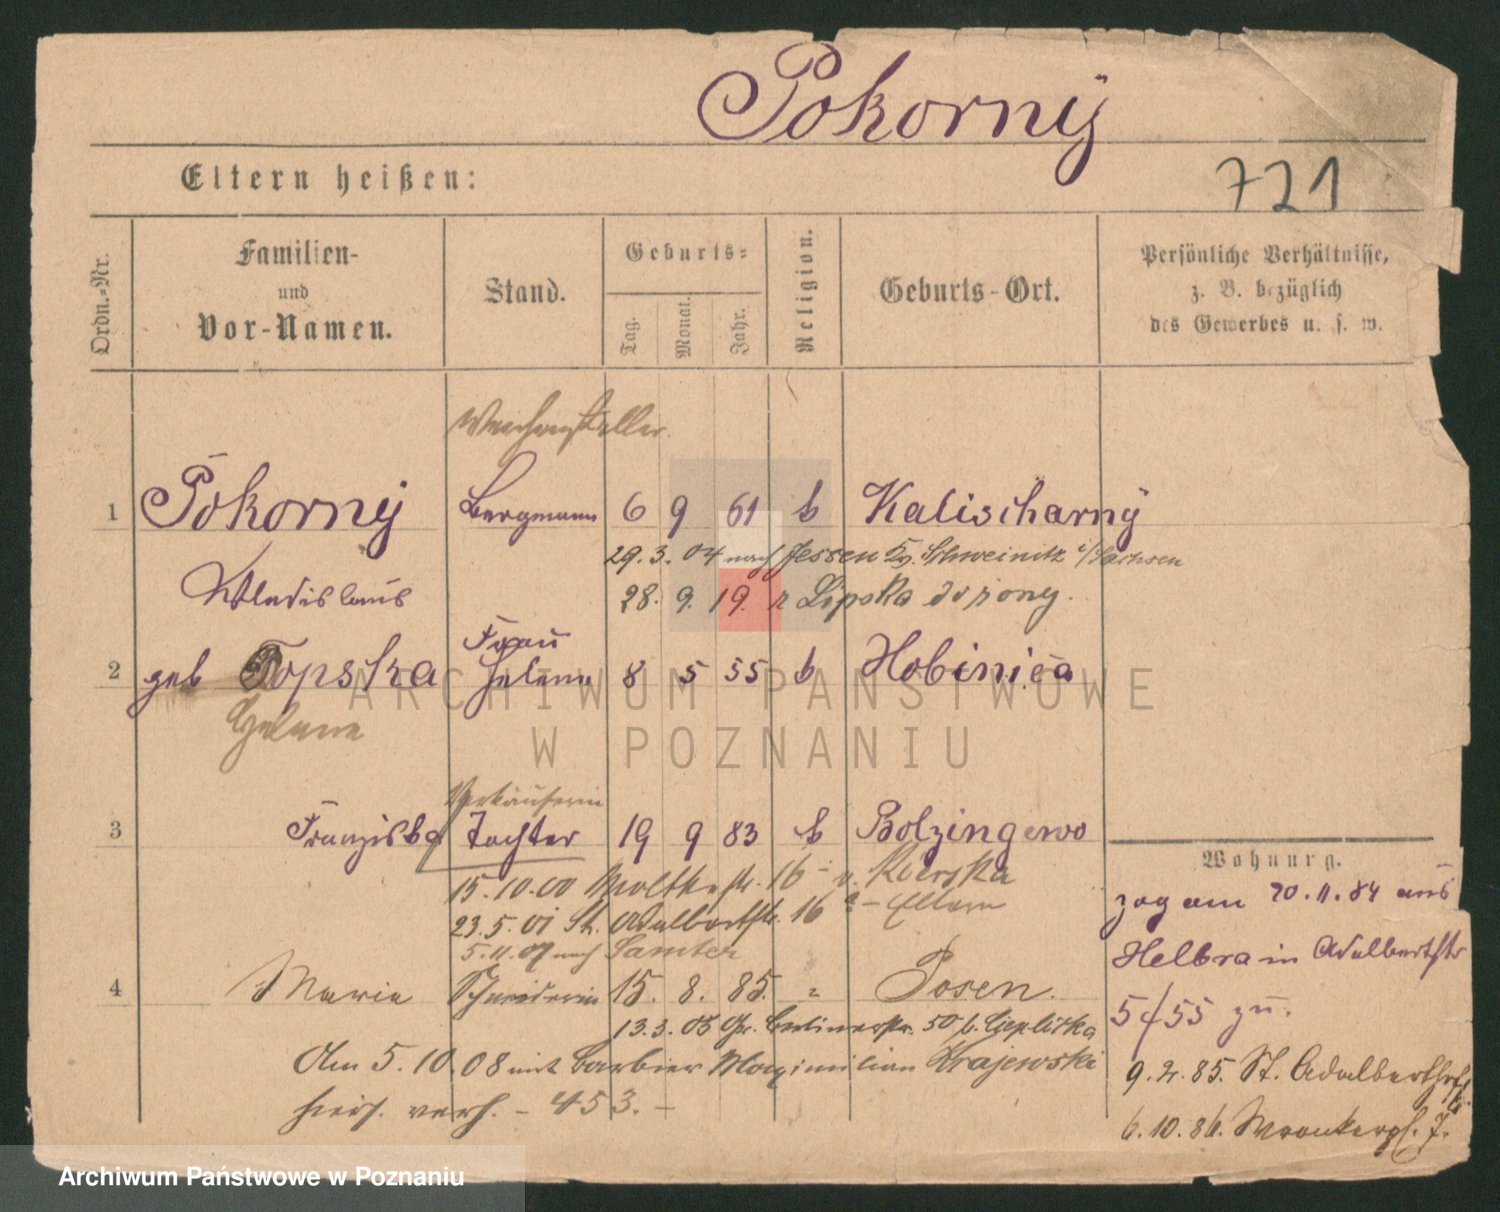 Pokorny
Eltern heißen:
721
Ordn.-Nr.
Familien-
und
Vor-Namen.
Stand.
Geburts-
Tag.
Monat.
Jahr.
Religion.
Geburts-Ort.
Persönliche Verhältnisse,
z. B. bezüglich
des Gewerbes u. s. w.
Weichensteller
1 Pokorny Bergmann 6 9 61 k Kalischarny
29.3.04 nach Jessen Kr. Schweinitz i/Sachsen
Wladislaus 28. 9. 19. Lipska
Frau
2 geb Topska Helene 8 5 55 k
Helene
ARCHIWUM PAŃSTWOWE
W POZNANIU
Verkäuferin
3 Franziska Tochter 19 9 83 k Bolzingewo
15.10.00 Moltkestr. 16 - v. Rierska
23.5.01 St. Adalbertstr. 16 - Eltern
5.11.07 nach Samter
4 Maria Schneiderin 15. 8. 85. " Posen.
13.3.05 Gr. Berlinerstr. 50 b.
Am 5.10.08 mit Barbier Maximilian Krajewski
hiers. verh. - 453. -
Wohnung.
zog am 20.11.84 aus
Helbra in Adalbertstr
5/55 zu.
9.2.85. St. Adalbertstr
6.10.86. Wronkerpl. 7.
Archiwum Państwowe w Poznaniu